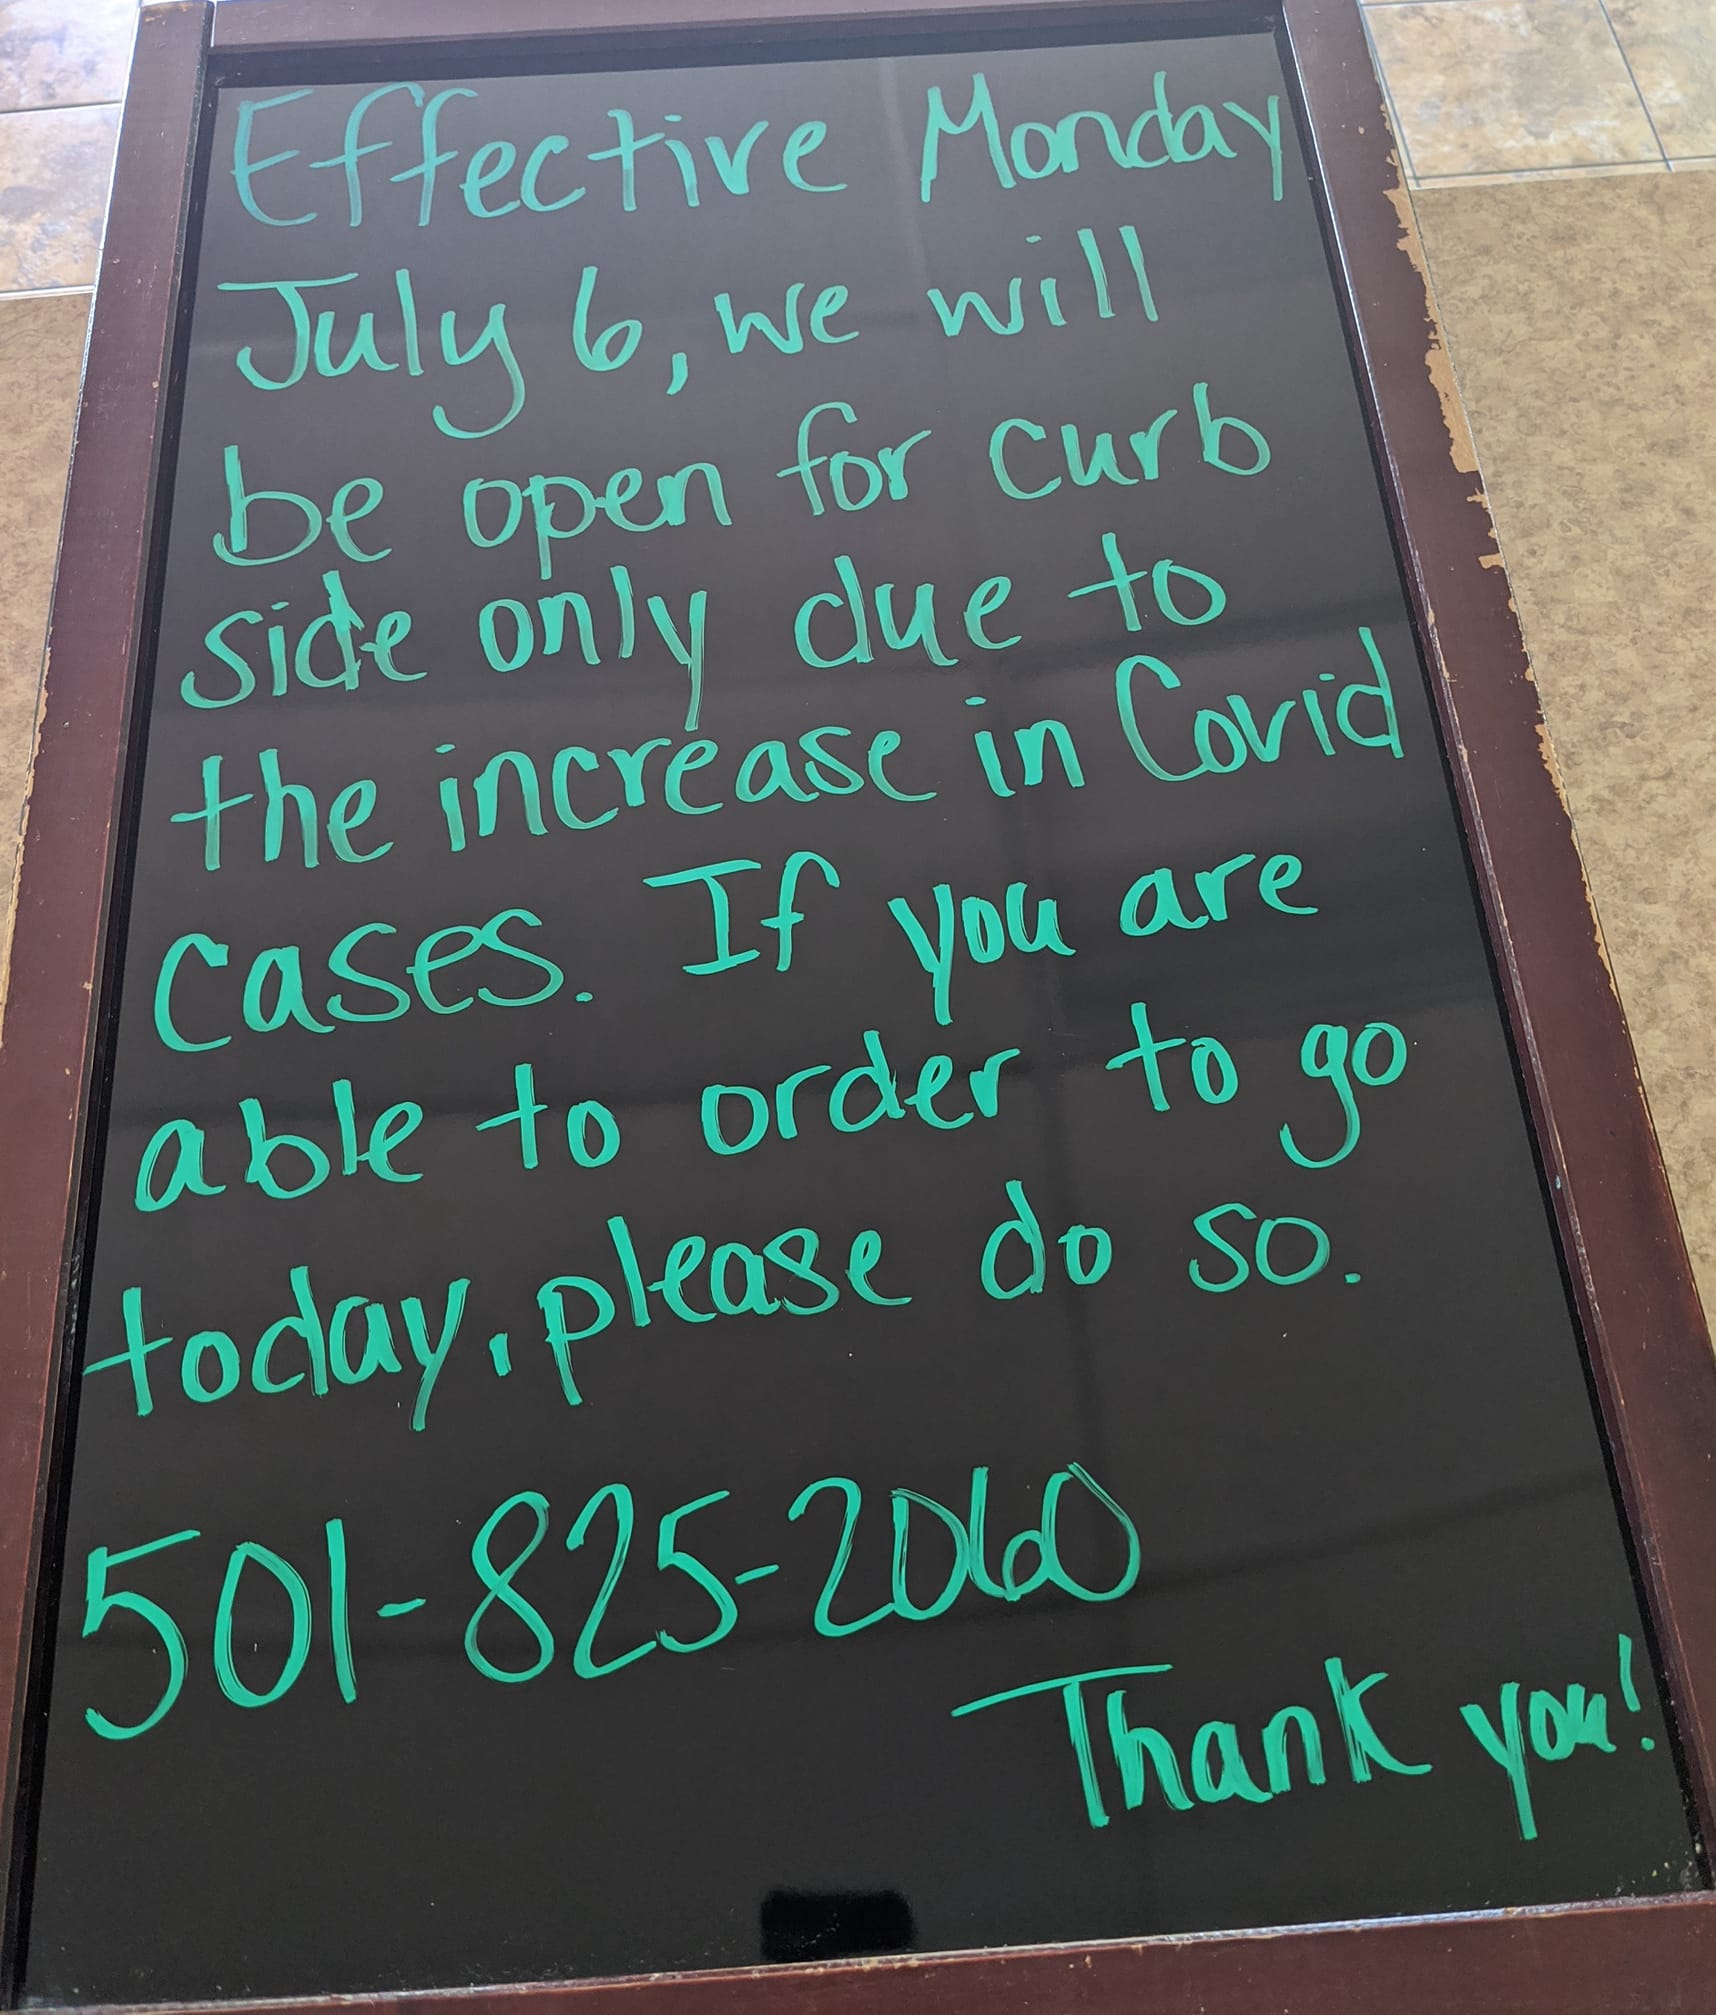 Effective Monday
July 6, we will
be open for curb
side only due to
the increase in Covid
cases. If you are
able to order to go
today, please do so.
501-825-2060
Thank you!